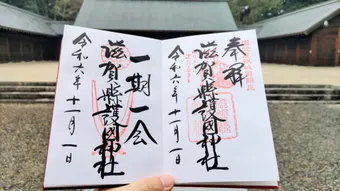 奉拝
滋賀縣護国神社
令和六年十一月一日
一期一会
滋賀縣護国神社
令和六年十一月一日